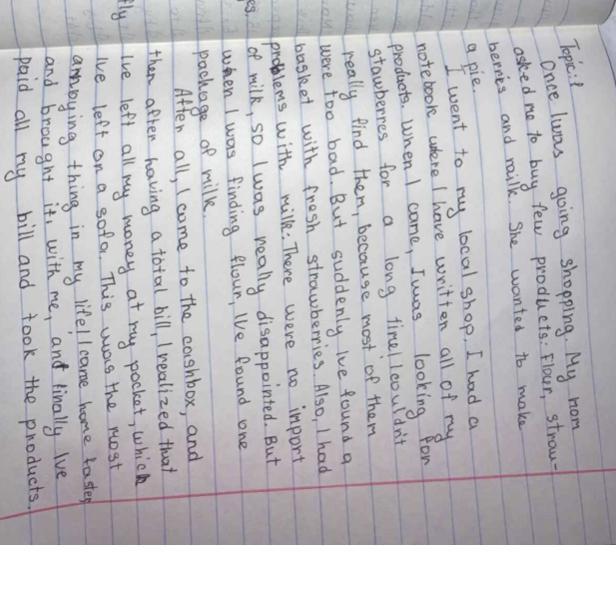 Topic:1
Once I was going shopping. My mom
asked me to buy few products: Flour, straw-
berries and milk. She wanted to make
a pie.
I went to my local shop. I had a
notebook where I have written all of my
products. When I came, I was looking for
stawberres for a long time! I couldn't
really find them, because most of them
were too bad. But suddenly I've found a
basket with fresh strawberries. Also, I had
problems with milk: There were no import
of milk, so I was really disappointed. But
when I was finding flour, I've found one
package of milk.
After all, I came to the cashbox, and
then after having a total bill, I realized that
I've left all my money at my pocket, which
I've left on a sofa. This was the most
annoying thing in my life! I came home faster
and brought it, with me, and finally I've
paid all my bill and took the products.
es.
fly